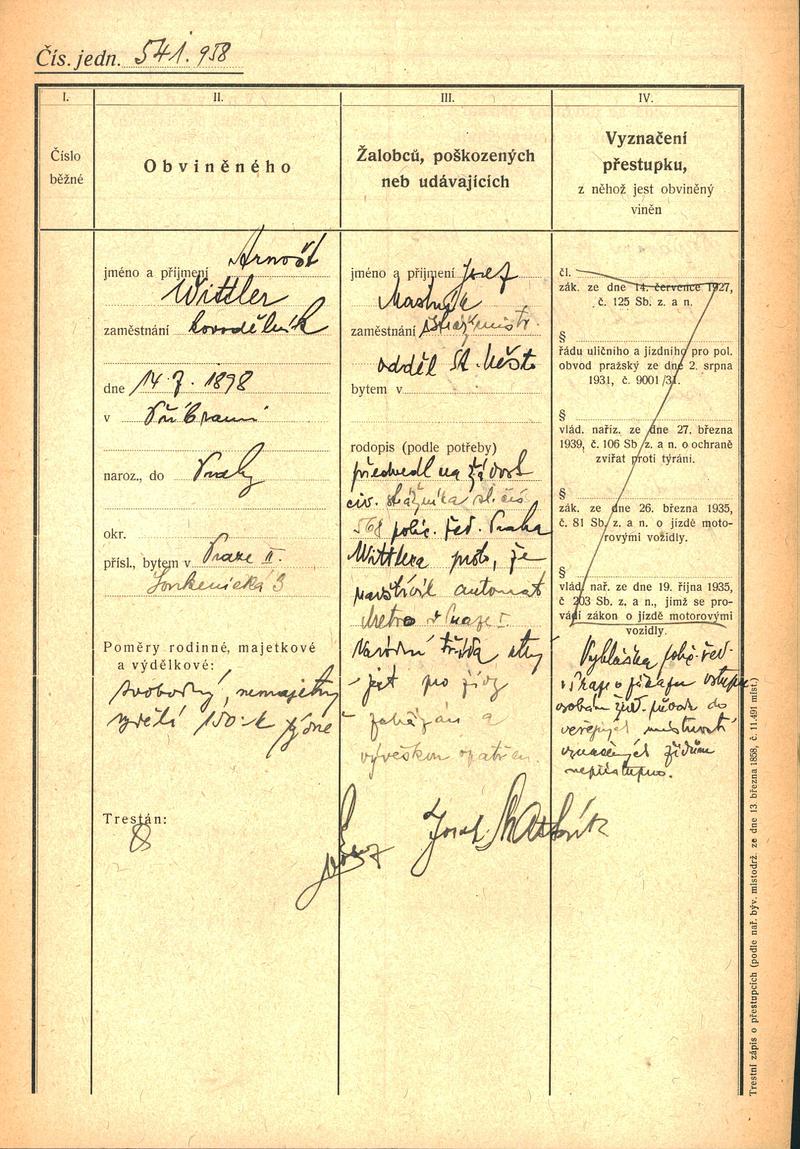 Čís. jedn. 541.958
I.
Číslo
běžné
II.
Obviněného
jméno a příjmení Arnošt
Wittler
zaměstnání kovodělník
dne 14.7.1898
v Příbrami
naroz., do Prahy
okr.
přísl., bytem v Praze II.
3
Poměry rodinné, majetkové
a výdělkové:
svobodný, nemajetný
vydělá 150.-K týdně
Trestán:
III.
Žalobců, poškozených
neb udávajících
jméno a příjmení Josef
zaměstnání strážmistr.
odděl St. Město
bytem v
rodopis (podle potřeby)
předvedl na žádost
civ. strážníka sl. čís.
568 polic. řed. Praha
Wittlera proto, že
navštívil automat
Metro v Praze I.
Národní třída
jest pro židy
zakázán a
vývěskou opatřen.
Josef
IV.
Vyznačení
přestupku,
z něhož jest obviněný
viněn
čl.
zák. ze dne 14. července 1927,
č. 125 Sb. z. a n.
§
řádu uličního a jízdního pro pol.
obvod pražský ze dne 2. srpna
1931, č. 9001/31.
§
vlád. naříz. ze dne 27. března
1939, č. 106 Sb. z. a n. o ochraně
zvířat proti týrání.
§
zák. ze dne 26. března 1935,
č. 81 Sb. z. a n. o jízdě moto-
rovými vozidly.
§
vlád. nař. ze dne 19. října 1935,
č 203 Sb. z. a n., jimž se pro-
vádí zákon o jízdě motorovými
vozidly.
Vyhláška polic. řed.
v Praze o zákazu vstupu
osobám žid. původu do
veřejných místností
označených židům
nepřístupno.
Trestní zápis o přestupcích (podle nař. býv. místodrž. ze dne 13. března 1858, č. 11.491 míst.)